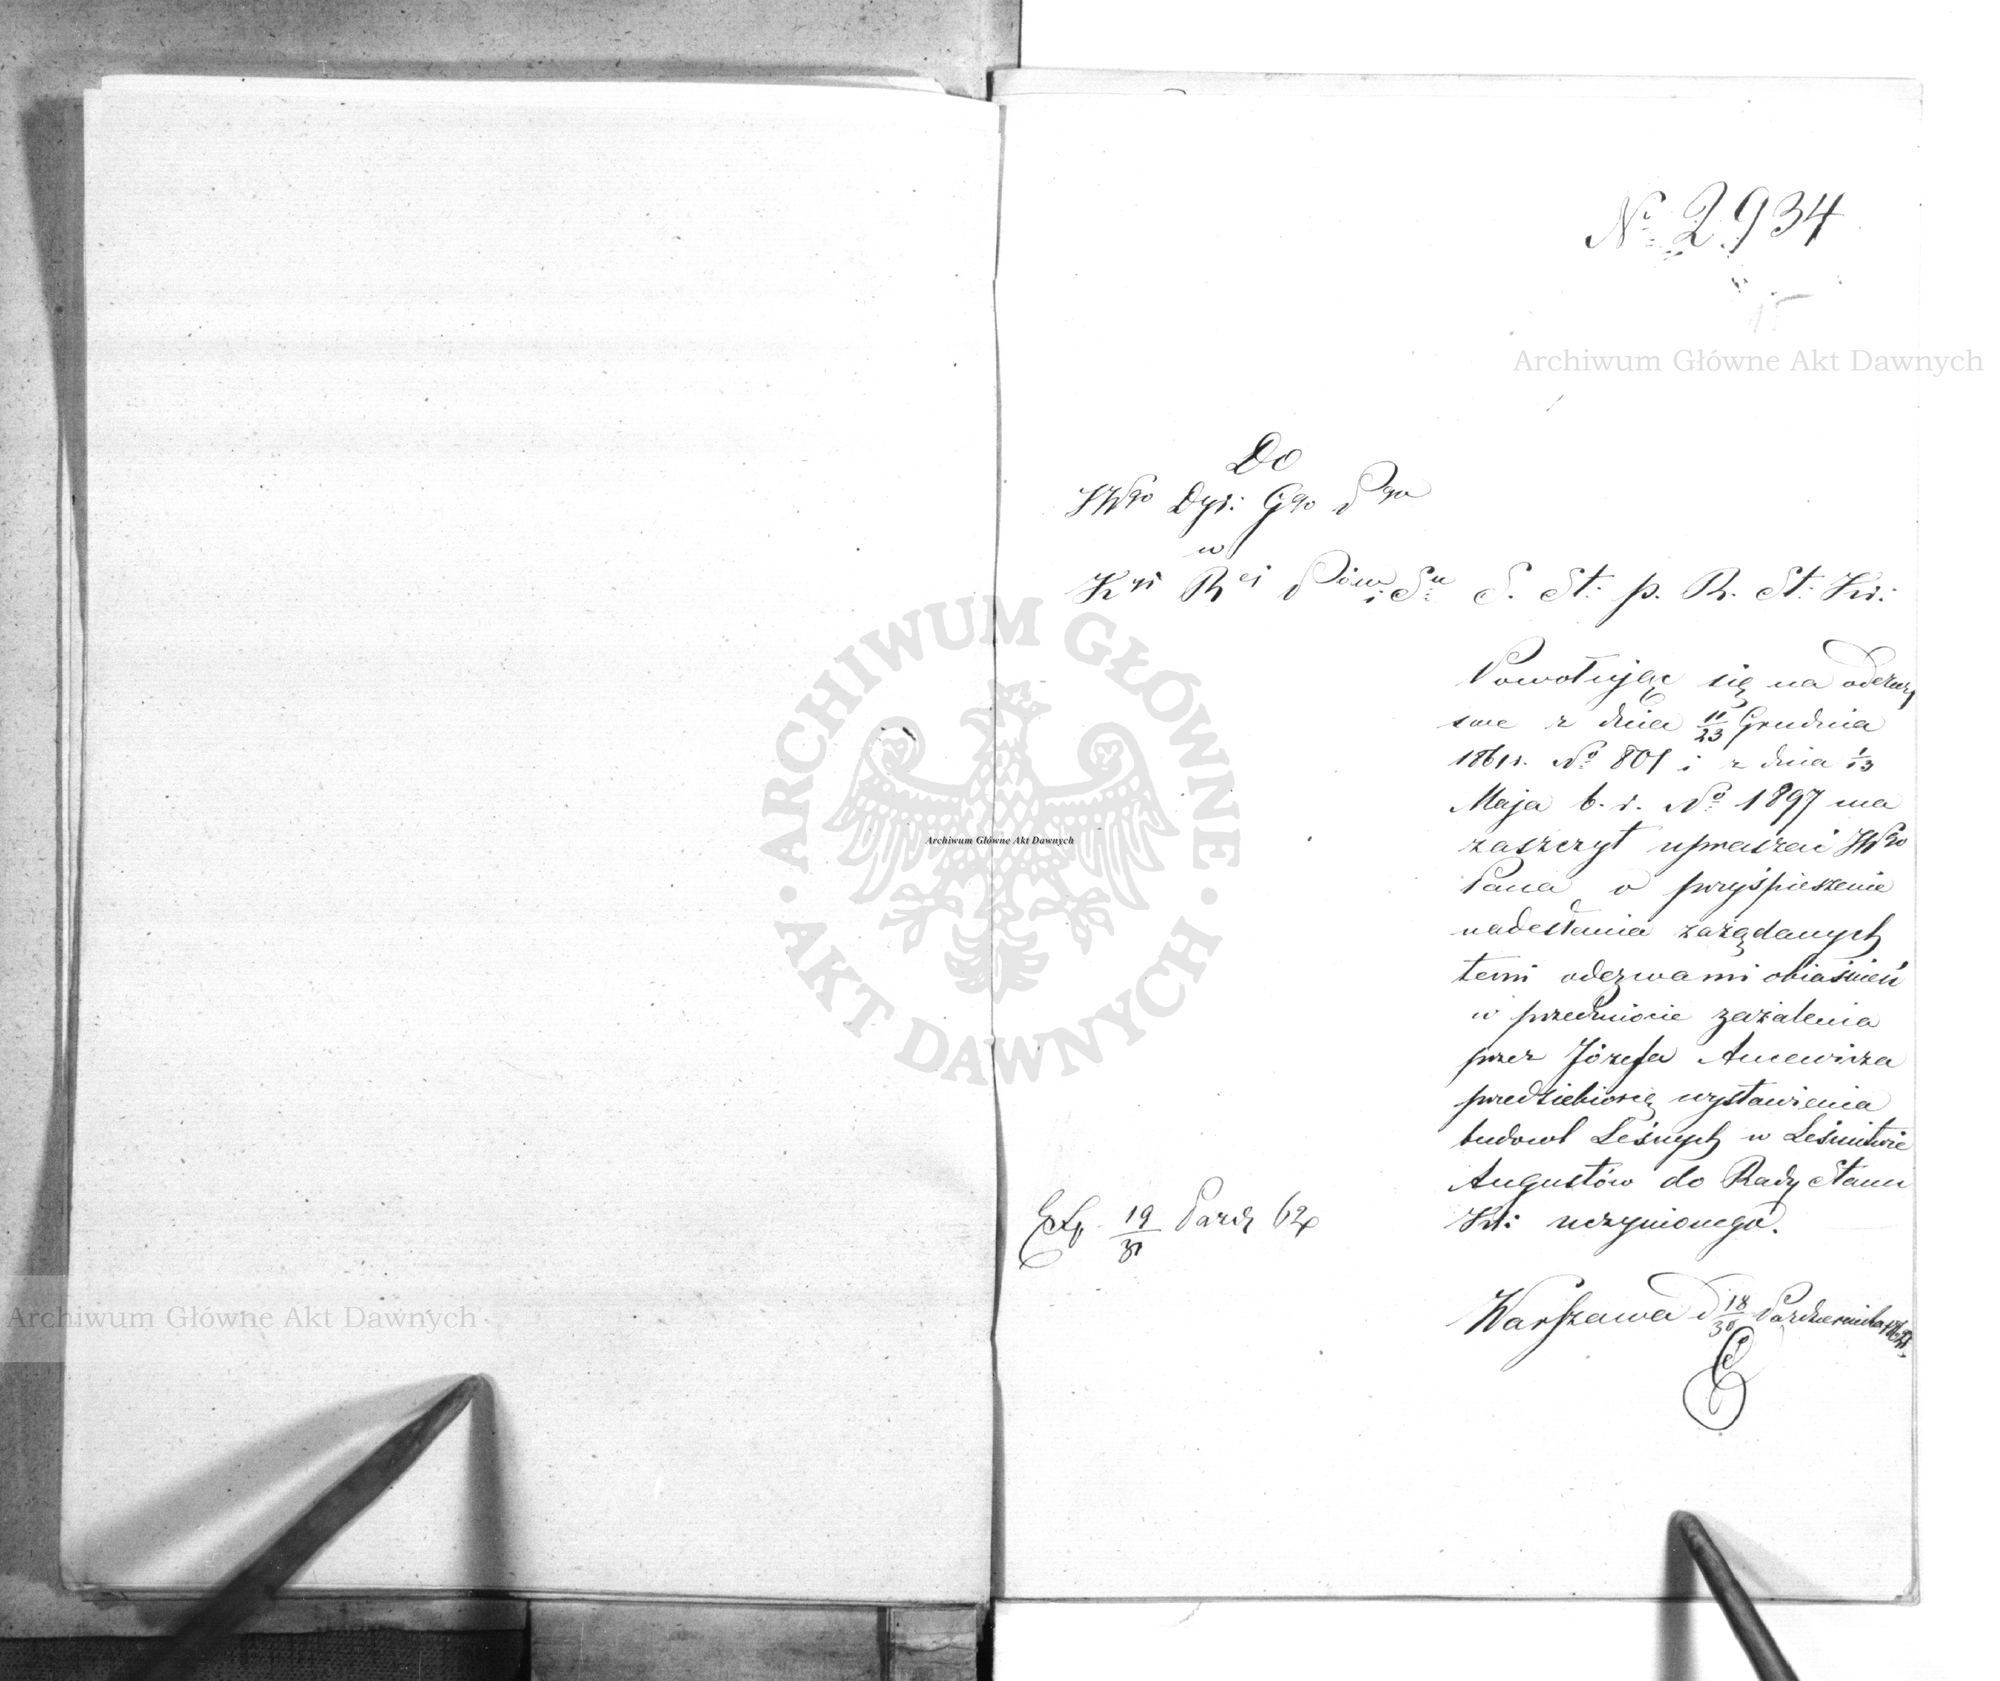 № 2934
15
Archiwum Główne Akt Dawnych
Do
JWgo Dyr: Ggo Pgo
w
Kyi Rei
S. St: p. R. St: Kr:
Powołując się na odezwy
swe z dnia 11/23 Grudnia
1861 r. № 801 i z dnia 1/13
Maja b. r. № 1897 ma
zaszczyt upraszać JWgo
Pana o przyśpieszenie
nadesłania zażądanych
temi odezwami objaśnień
w przedmiocie zażalenia
przez Józefa
przedsiębiorcę wystawienia
budowl Leśnych w Leśnictwie
Augustów do Rady Stanu
Kr: uczynionego.
Exp. 19/31 Paźdz 62
Warszawa d 18/30 Października 1862 r.
ARCHIWUM GŁÓWNE AKT DAWNYCH
Archiwum Główne Akt Dawnych
Archiwum Główne Akt Dawnych